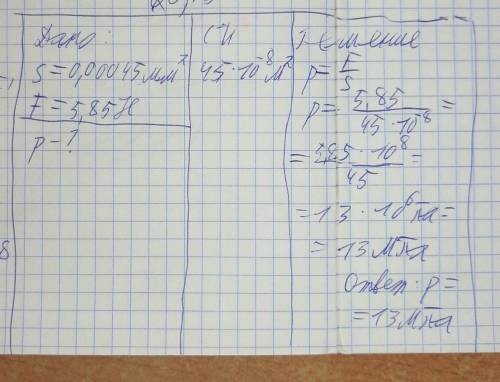 Дано:
S = 0,00045 мм²
F = 5,85 Н
p - ?
СИ
45 · 10⁻⁸ м²
Решение
p = F/S
p = 5,85 / 45 · 10⁻⁸ =
= 5,85 · 10⁸ / 45 =
= 13 · 10⁶ Па =
= 13 МПа
Ответ: p =
= 13 МПа
8